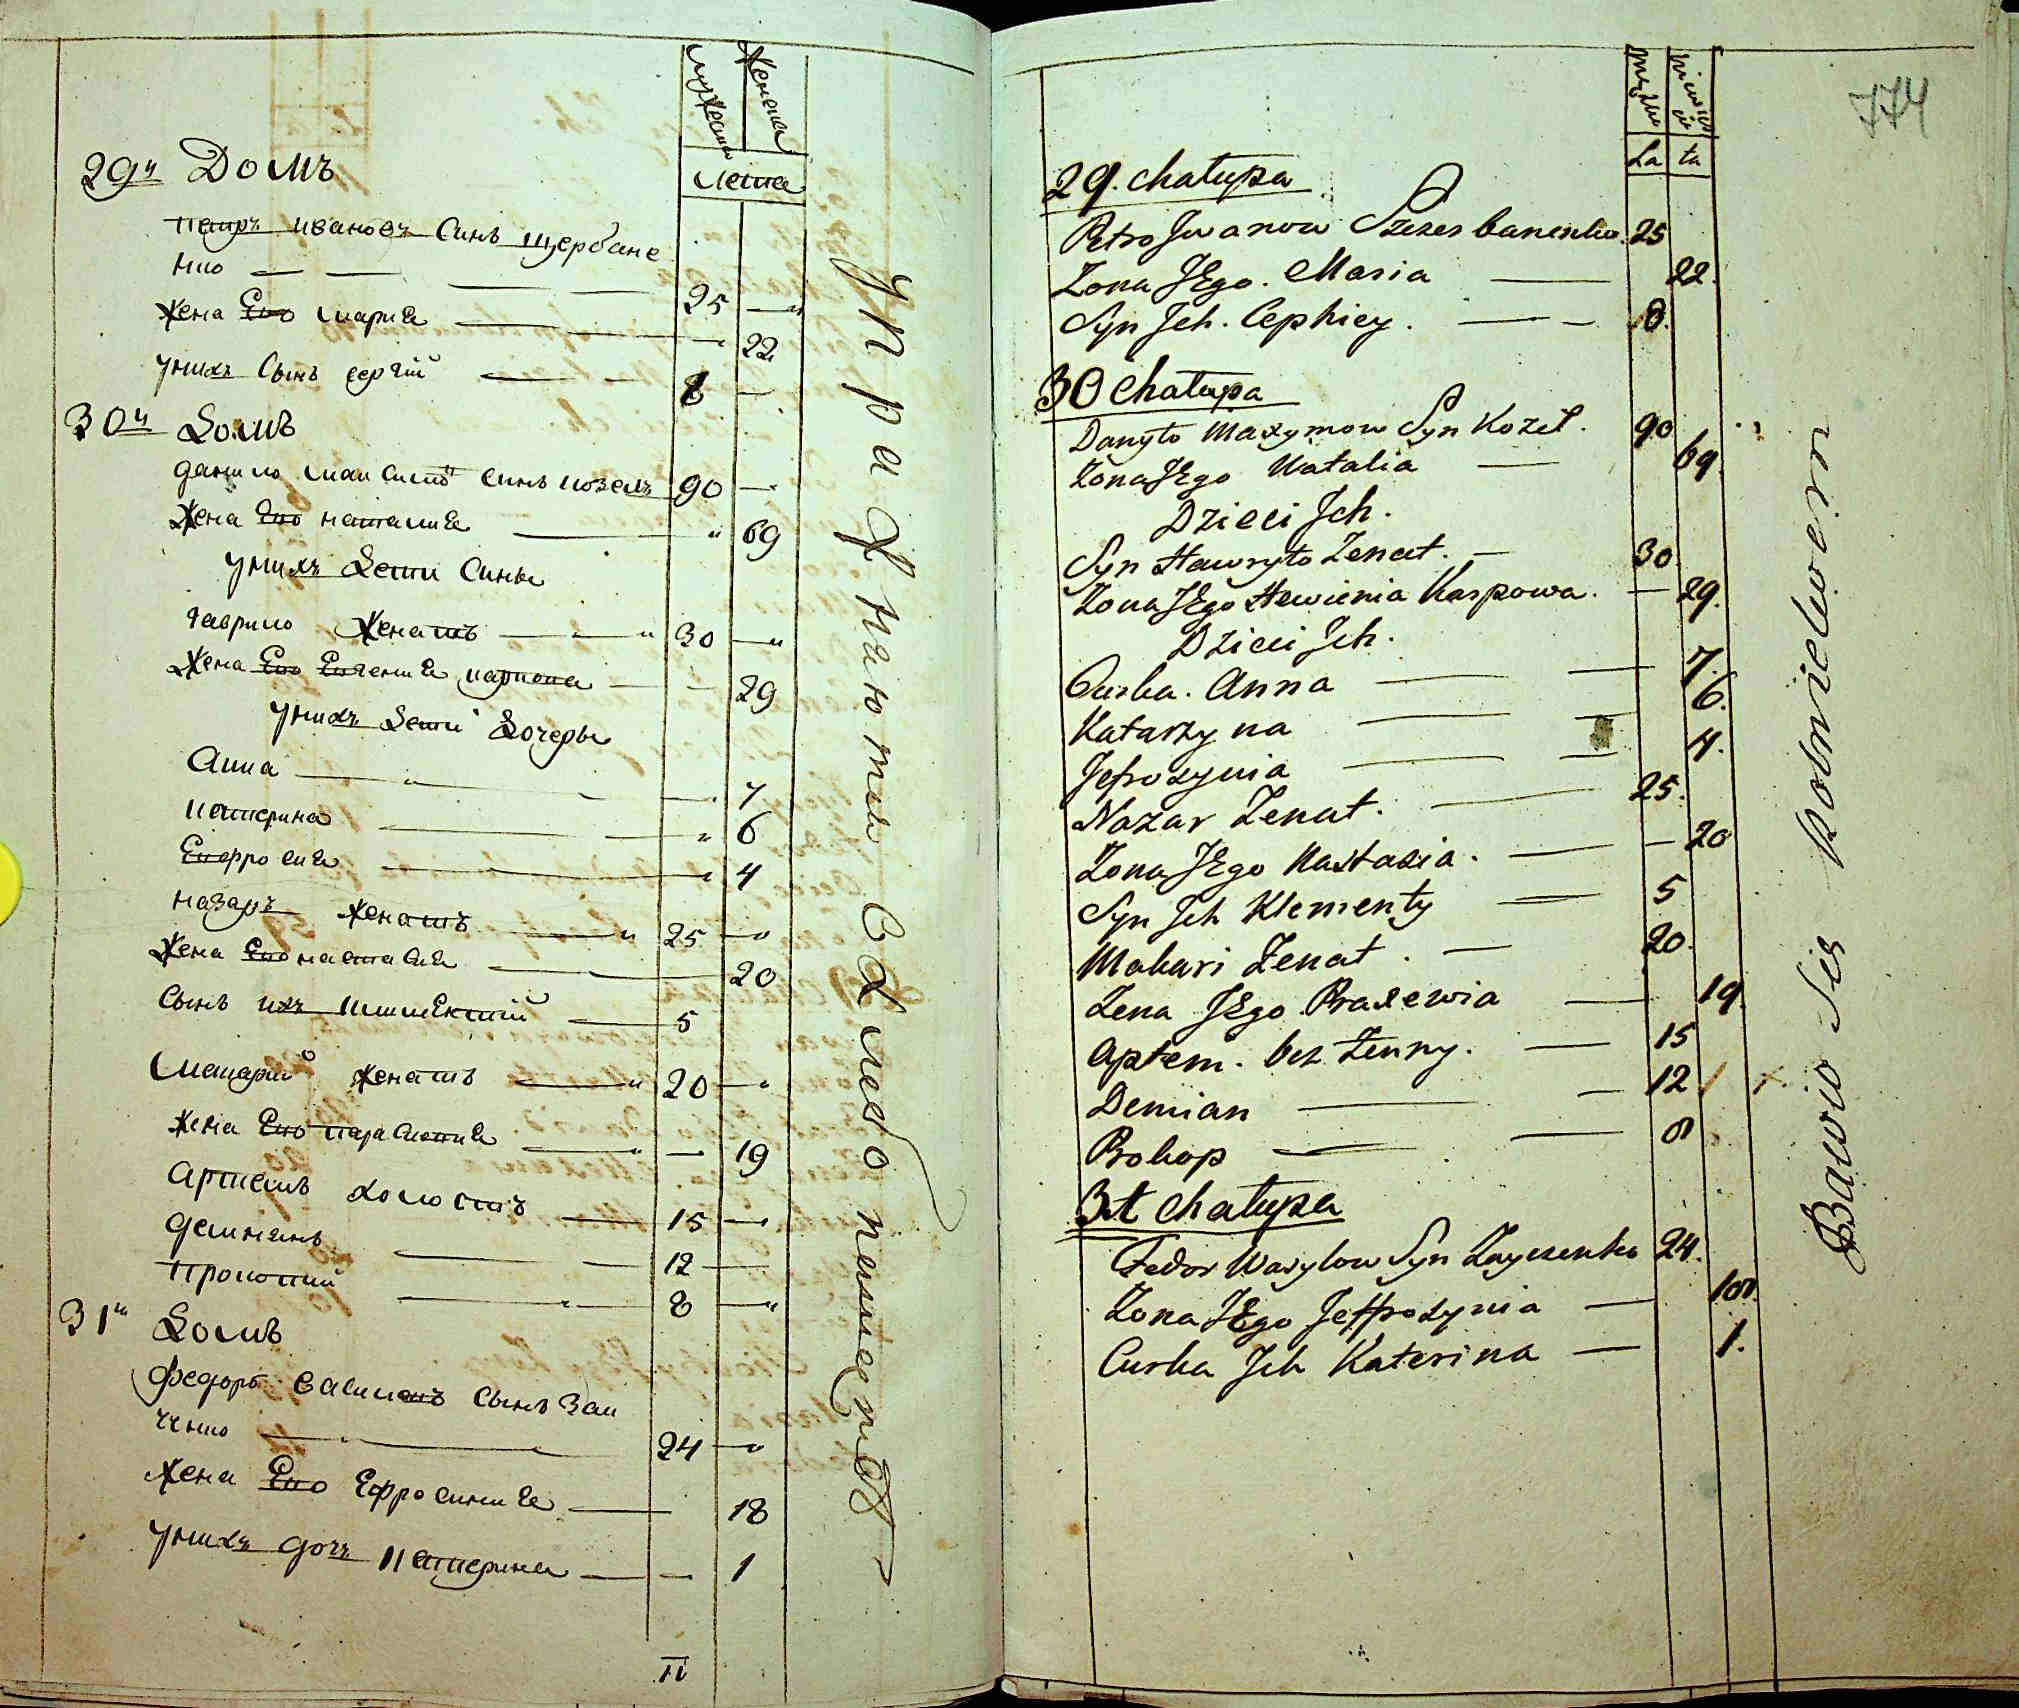 мужеска
женска
лета
29й Домъ
петръ ивановъ Синъ щербане
нко
25
жена Его мариа
22
унихъ Сынъ сергій
8
30й Домъ
данило максимовъ Синъ козелъ 90
жена Его наталиа 69
унихъ Дети Сины
гаврило женатъ 30
жена Его Евгениа карпова 29
унихъ Дети Дочеры
Анна 7
катерина 6
Ефросиа 4
назаръ женатъ 25
жена Его настасиа 20
Сынъ ихъ климентий 5
макарий женатъ 20
жена Его параскевиа 19
Артемъ холостъ 15
демианъ 12
прокопий 8
31й Домъ
Федоръ василевъ Сынъ Заи
ченко 24
жена Его Ефросиниа 18
унихъ дочъ катерина 1
упражнаютца Хлебопашеством
męzka
La ta
774
29. chałupa
Petro Jwanow Szczerbanenko. 25
Zona JEgo. Maria 22.
Syn Jch. Cephiey. 8.
30 Chałupa
Danyło Maxymow Syn Kozeł. 90
Zona JEgo Natalia 69.
Dzieci Jch.
Syn Hawryło Zenat. 30
Zona JEgo Hewienia Karpowa. 29.
Dzieci Jch.
Curka. Anna 7.
Katarzyna 6.
Jefrozynia 4.
Nazar Zenat. 25.
Zona JEgo Nastazia. 20
Syn Jch Klementy 5
Makari Zenat. 20.
Zena JEgo Praxewia 19.
Aptem. bez Zenny. 15
Demian 12
Prokop 8
31 chałupa
Fedor Wasylow Syn Zayczenko 24.
Zona JEgo Jeffrozynia 18.
Curka Jch Katerina 1.
Bawio Sie Rolnictwem